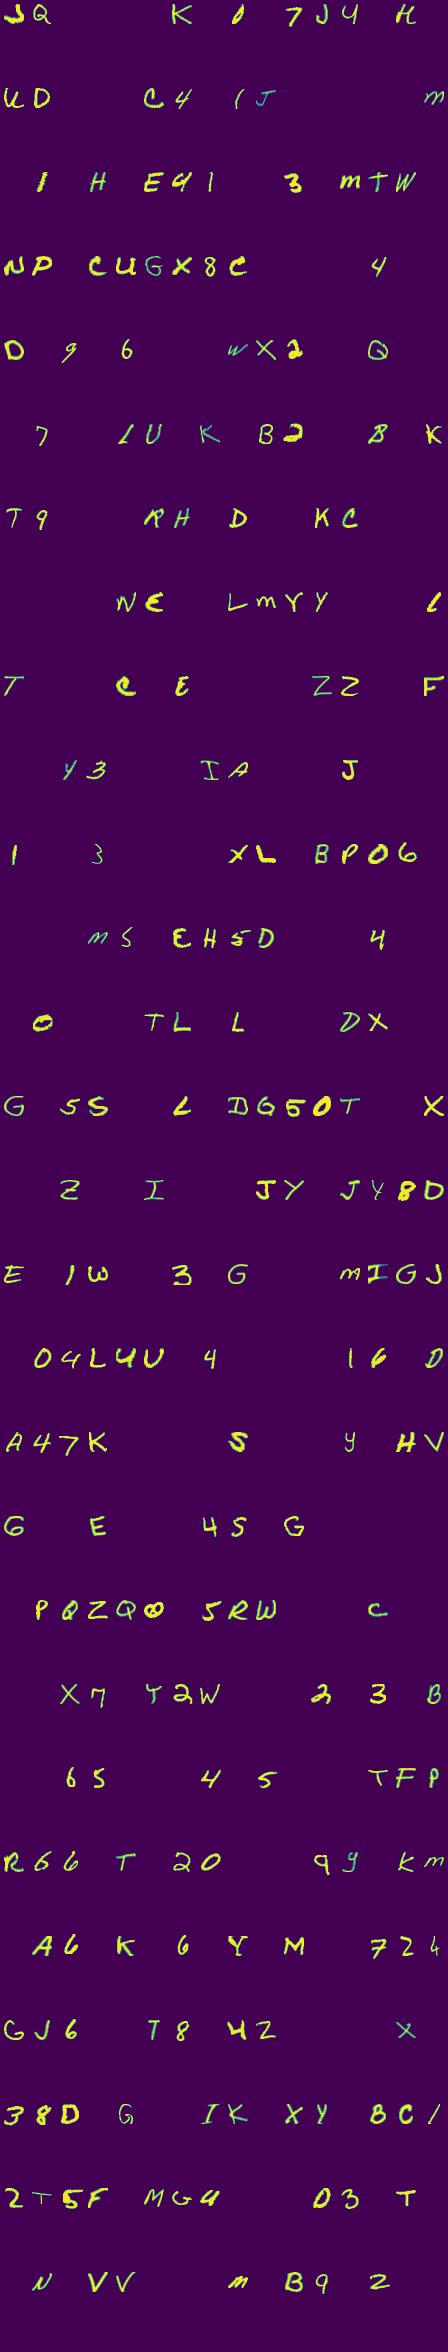 JQ K 0 7J4 H
UD C4 1J m
1 H E91 3 mTW
NP CUGX8C 4
D 9 6 WX2 Q
7 1U K B2 B K
T9 RH D KC
NE LmYY L
T C E ZZ F
Y3 IA J
1 3 XL BP06
mS EH5D 4
0 TL L DX
G 5S L DG50T X
Z I JY JY8D
E 1W 3 G mIGJ
04L4U 4 16 D
A47K S y HV
G E 4S G
PQZQ8 5RW C
X7 Y2W 2 3 B
65 4 5 TFP
R66 T 20 9y Km
A6 K 6 Y M 724
GJ6 T8 42 X
38D G IK XY 8C1
2T5F MG4 03 T
N VV m B9 2